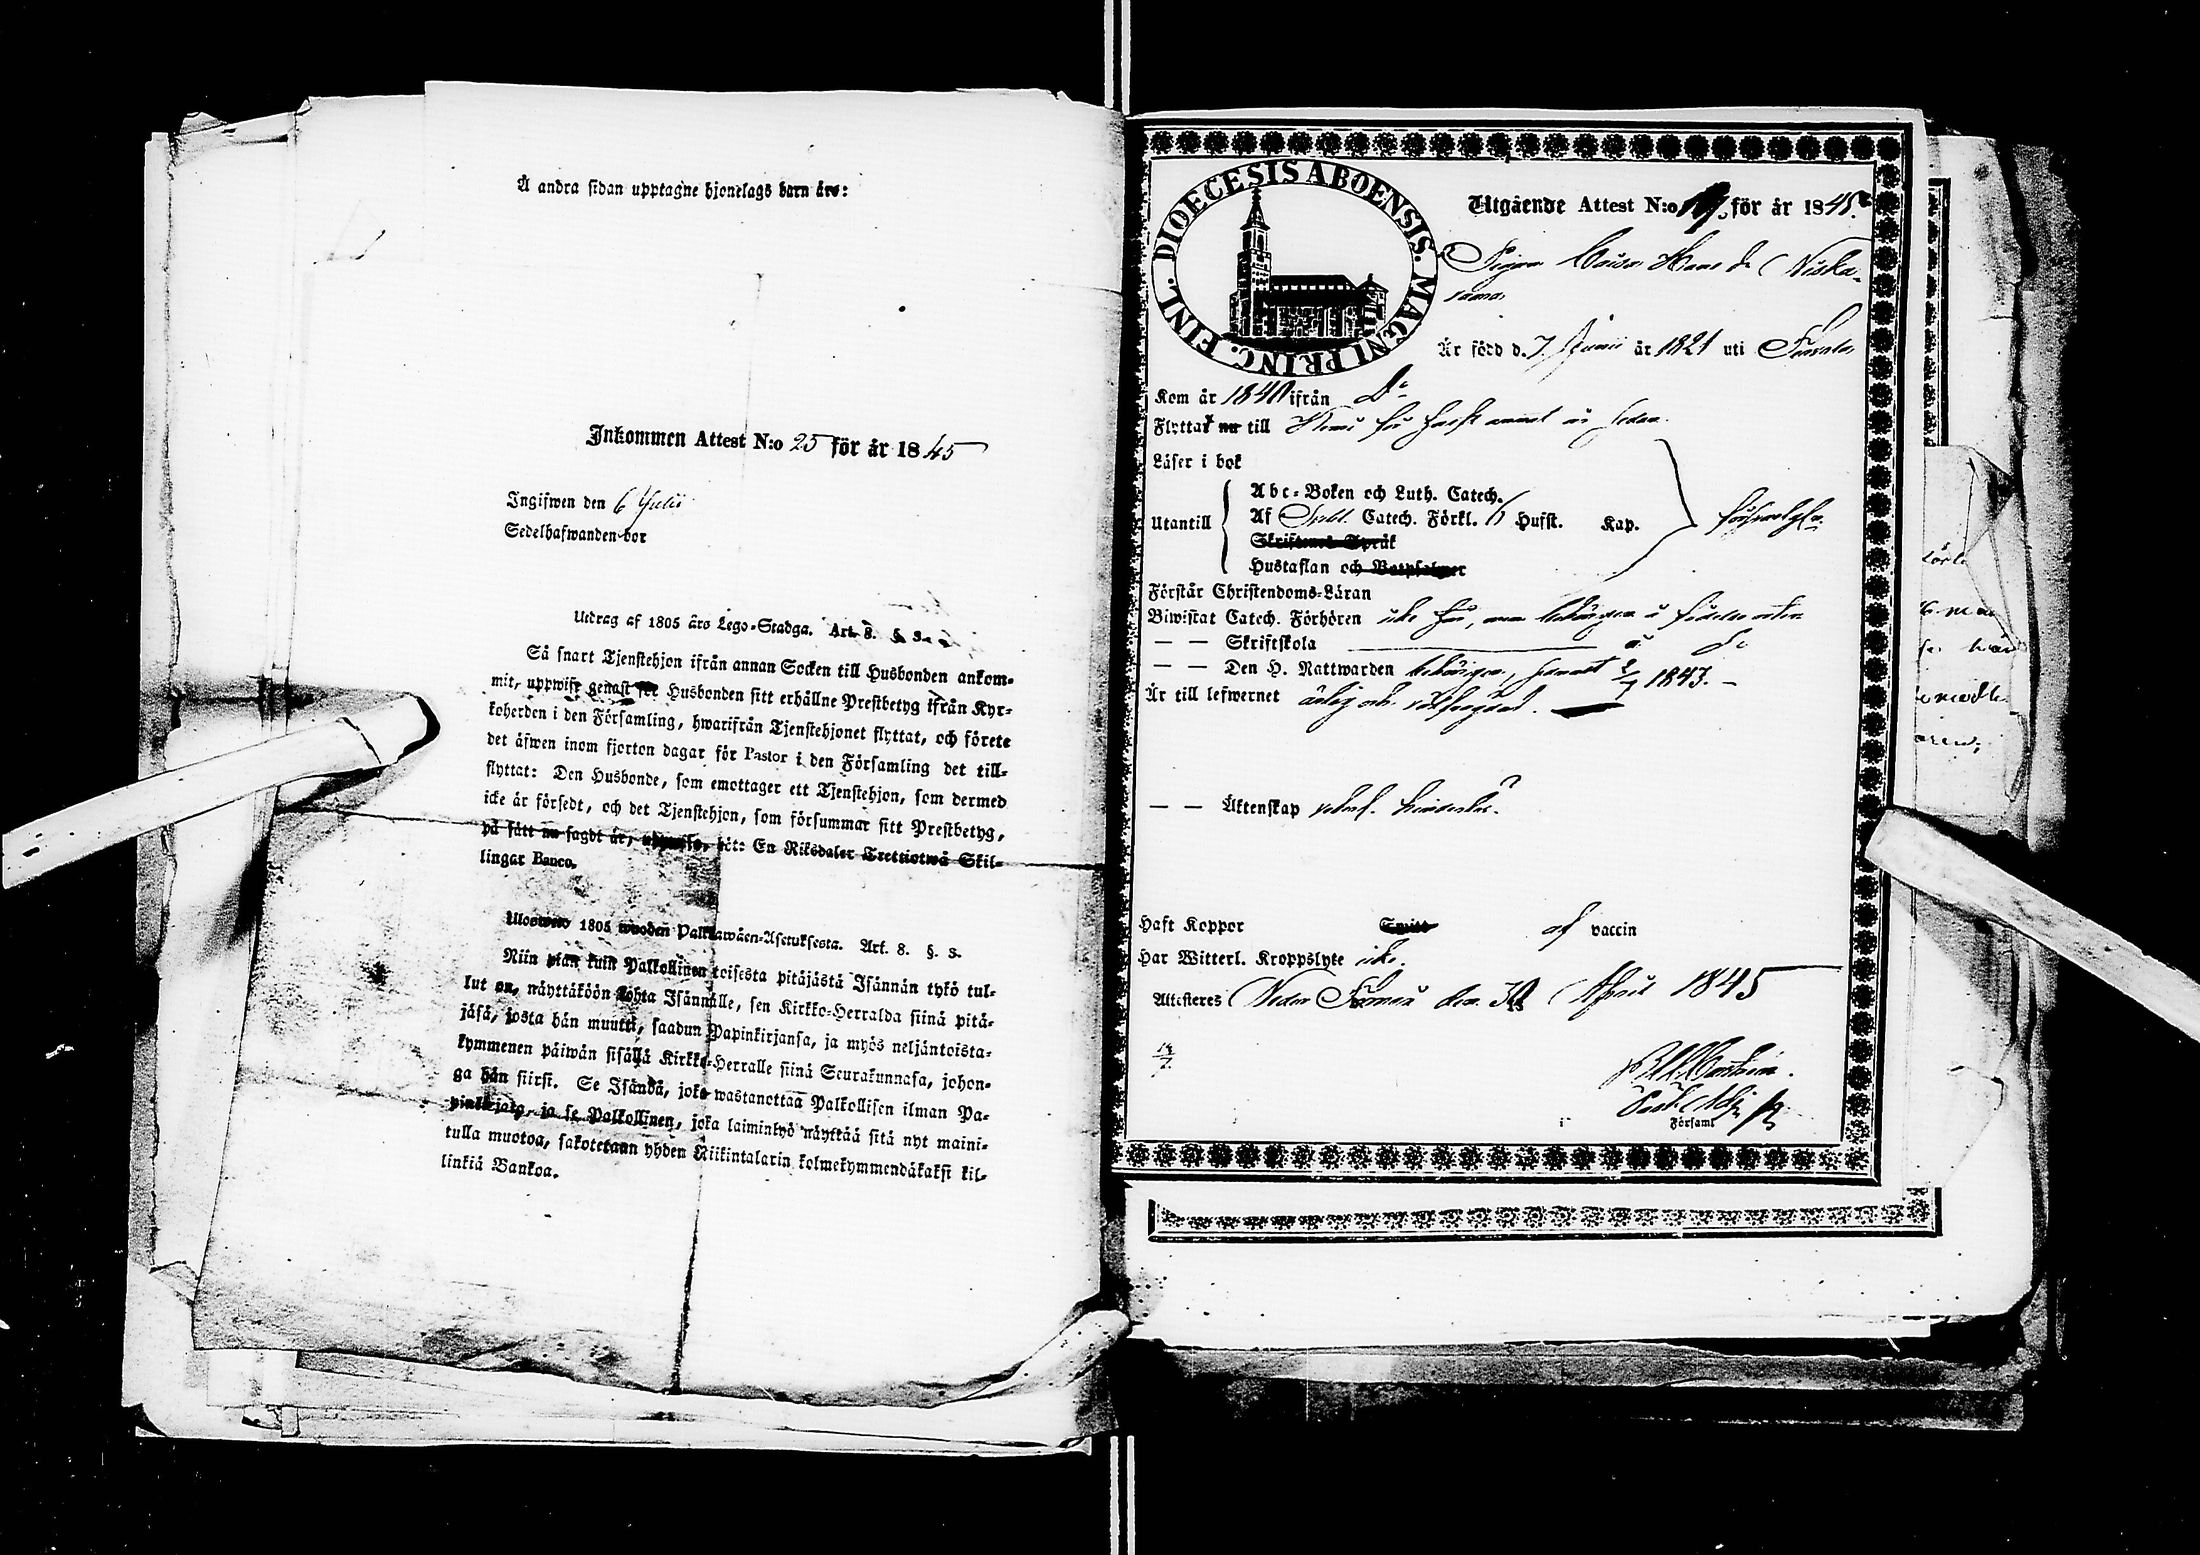 Å andra sidan upptagne hjonelags barn äro:
Inkommen Attest N:o 25 för år 1845
Ingifwen den 6 Julii
Sedelhafwanden bor
Utdrag af 1805 års Lego-Stadga. Art. 8. §. 3.
Så snart Tjenstehjon ifrån annan Socken till Husbonden ankom-
mit, uppwise genast för Husbonden sitt erhållne Prestbetyg ifrån Kyr-
koherden i den Församling, hwarifrån Tjenstehjonet flyttat, och förete
det äfwen inom fjorton dagar för Pastor i den Församling det till-
flyttat: Den Husbonde, som emottager ett Tjenstehjon, som dermed
icke är försedt, och det Tjenstehjon, som försummar sitt Prestbetyg,
på sätt nu sagdt är, uppwisa, böt: En Riksdaler Trettiotwå Skil-
lingar Banco.
Ulosweto 1805 wuoden Palkkawäen-Asetuksesta. Art. 8. §. 3.
Niin pian kuin Palkollinen toisesta pitäjästä Isännän tykö tul-
lut on, näyttäköön kohta Isännälle, sen Kirkko-Herralda siinä pitä-
jäsä, josta hän muutti, saadun Papinkirjansa, ja myös neljäntoista-
kymmenen päiwän sisällä Kirkko-Herralle siinä Seurakunnasa, johon-
ga hän siirsi. Se Isändä, joka wastanottaa Palkollisen ilman Pa-
pinkirjata, ja se Palkollinen, joka laiminlyö näyttää sitä nyt maini-
tulla muotoa, sakotetaan yhden Riikintalarin kolmekymmendäkaksi kil-
linkiä Bankoa.
DIOECESIS ABOENSIS. MAGNI PRINC. FINL.
Utgående Attest N:o för år 1845.
Pigan Caisa Hans dr Niska-
Är född d. 7 Junii år 1821 uti
Kom år 1840 ifrån Do
Flyttat nu till Kemi för
Läser i bok
Utantill
Abc-Boken och Luth. Catech.
Af Svebl. Catech. Förkl. Hufst. Kap. försvarligt.
Skriftenes Språk
Hustaflan och Botpsalmer
Förstår Christendoms-Läran
Biwistat Catech. Förhören icke här, men å
— — Skriftskola å do
— — Den H. Nattwarden behörigen, senast 2/7 1843.
Är till lefwernet ärlig och
— — Äktenskap
Haft Koppor af vaccin
Har Witterl. Kroppslyte icke.
Attesteres Neder Torneå den 30 April 1845
i Församl